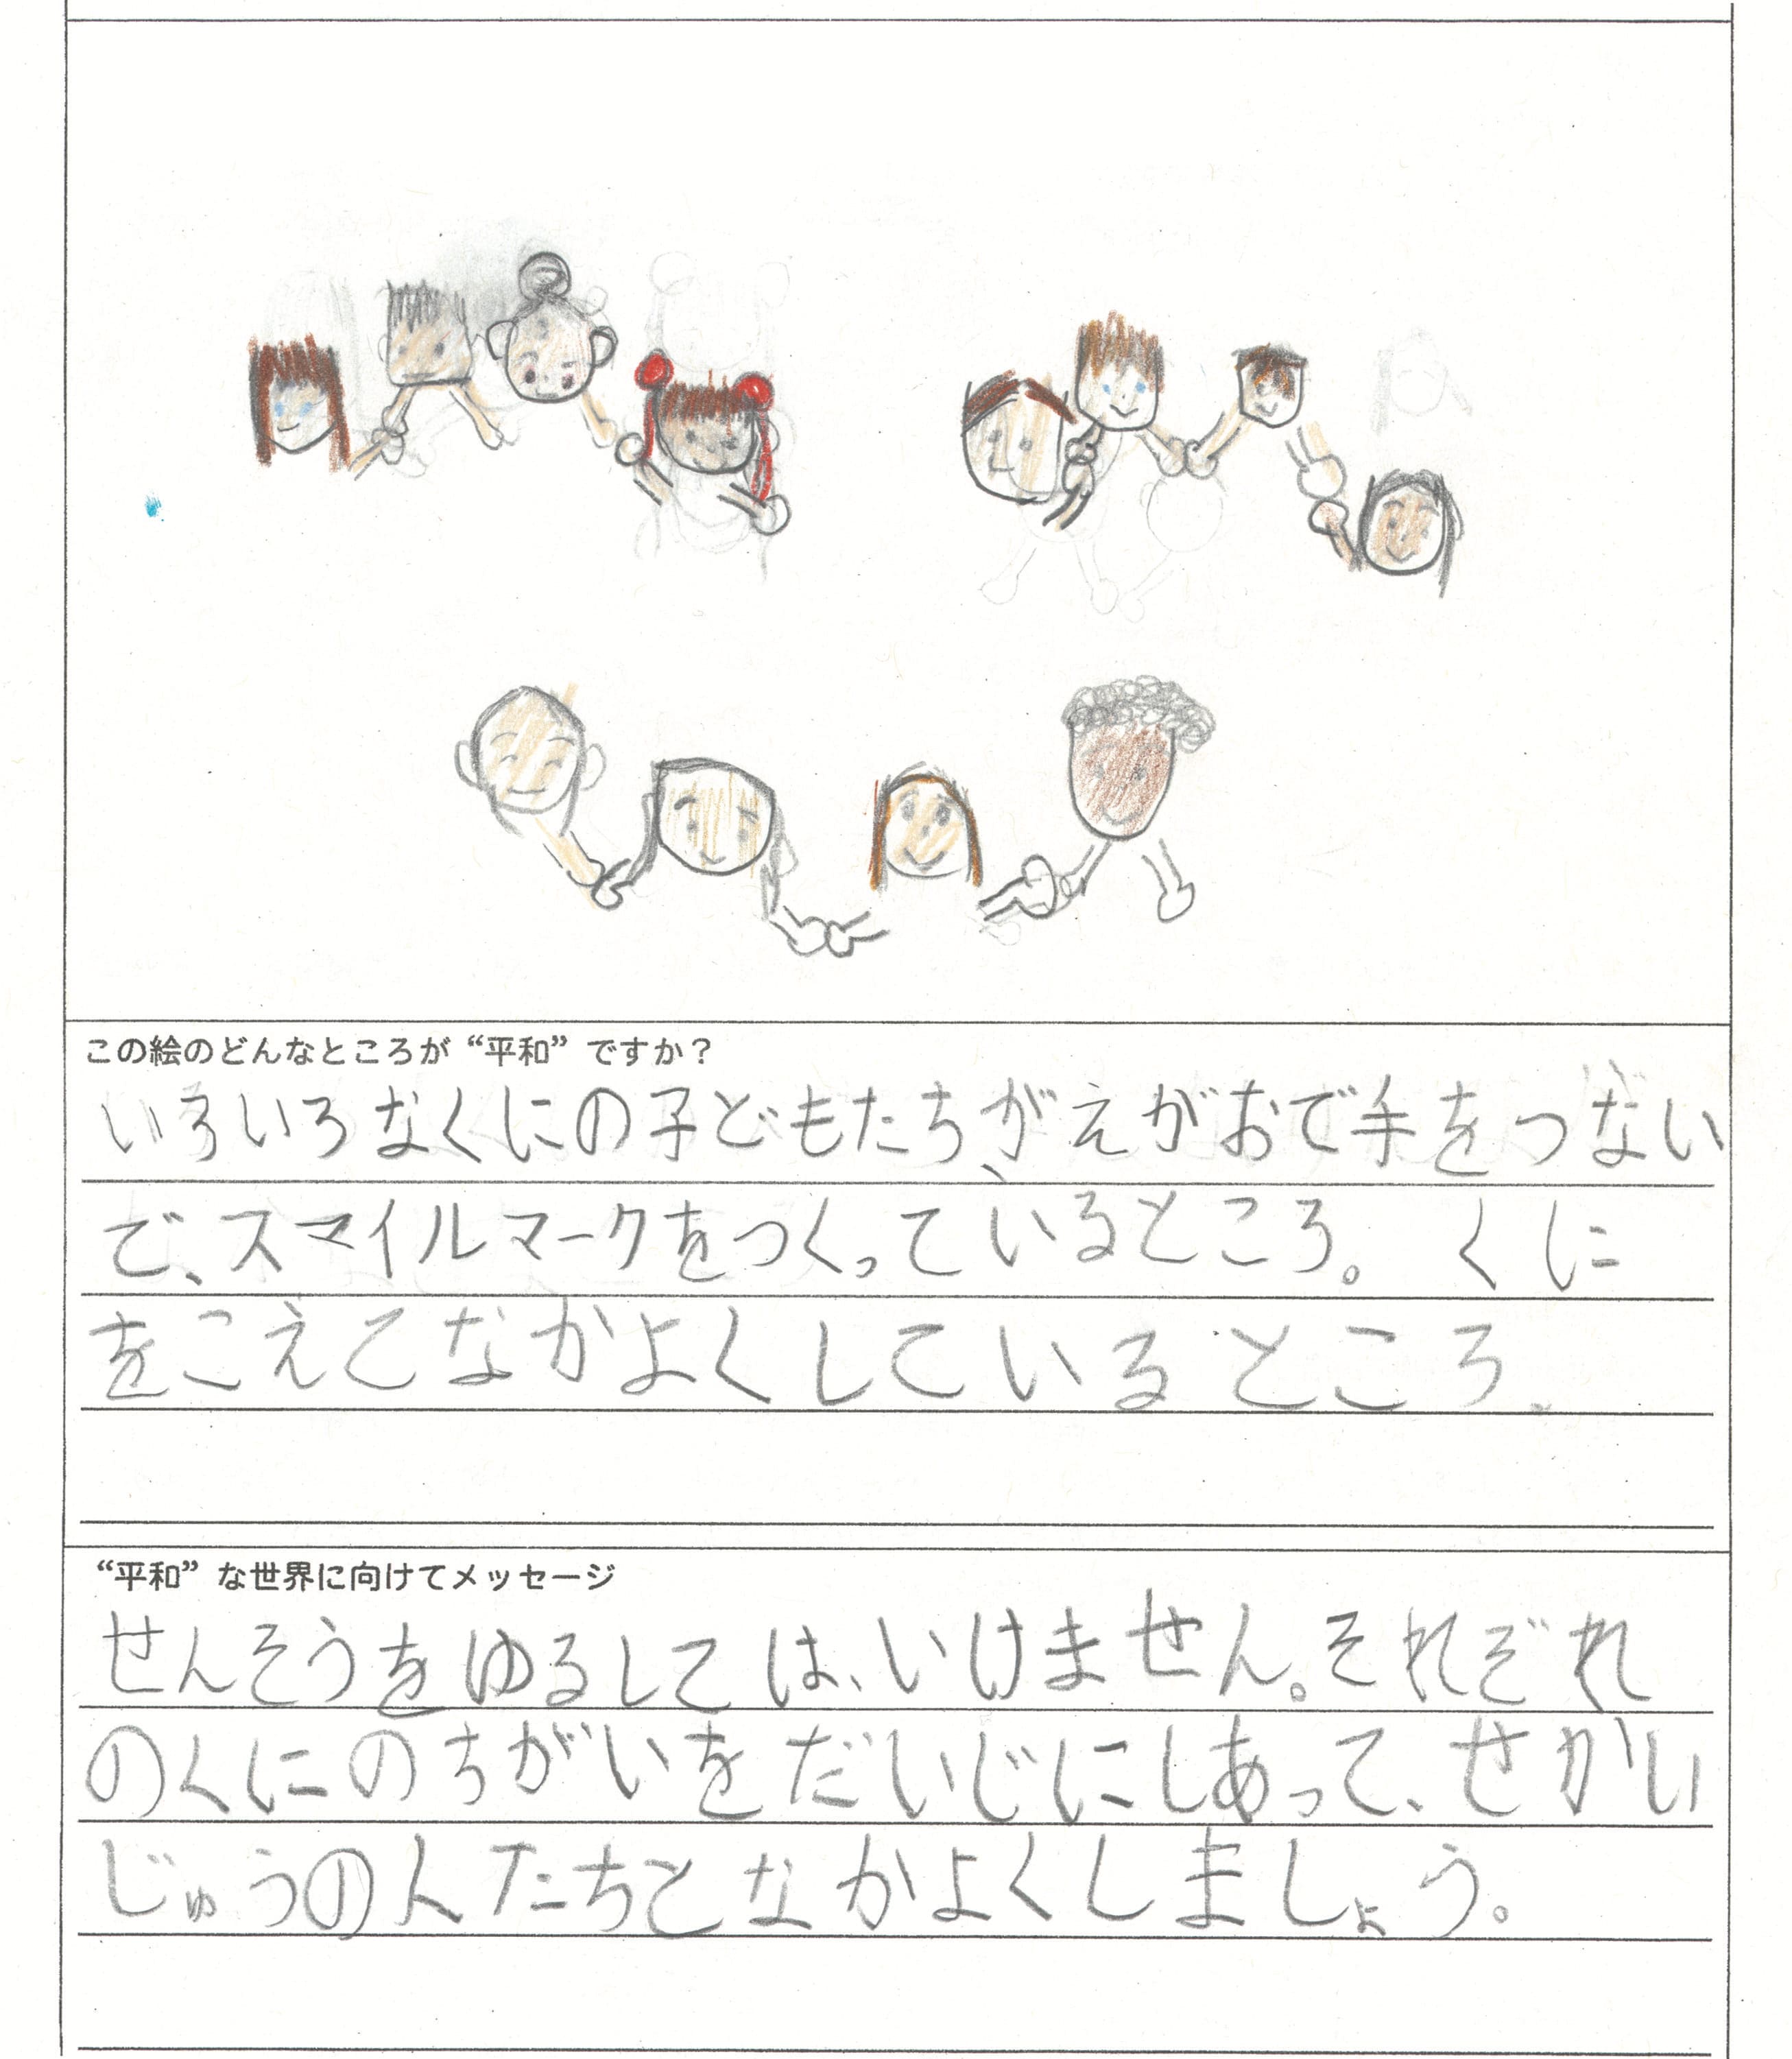 この絵のどんなところが“平和”ですか？
いろいろなくにの子どもたちが、えがおで手をつない
で、スマイルマークをつくっているところ。くに
をこえてなかよくしているところ。
“平和”な世界に向けてメッセージ
せんそうをゆるしては、いけません。それぞれ
のくにのちがいをだいじにしあって、せかい
じゅうの人たちとなかよくしましょう。